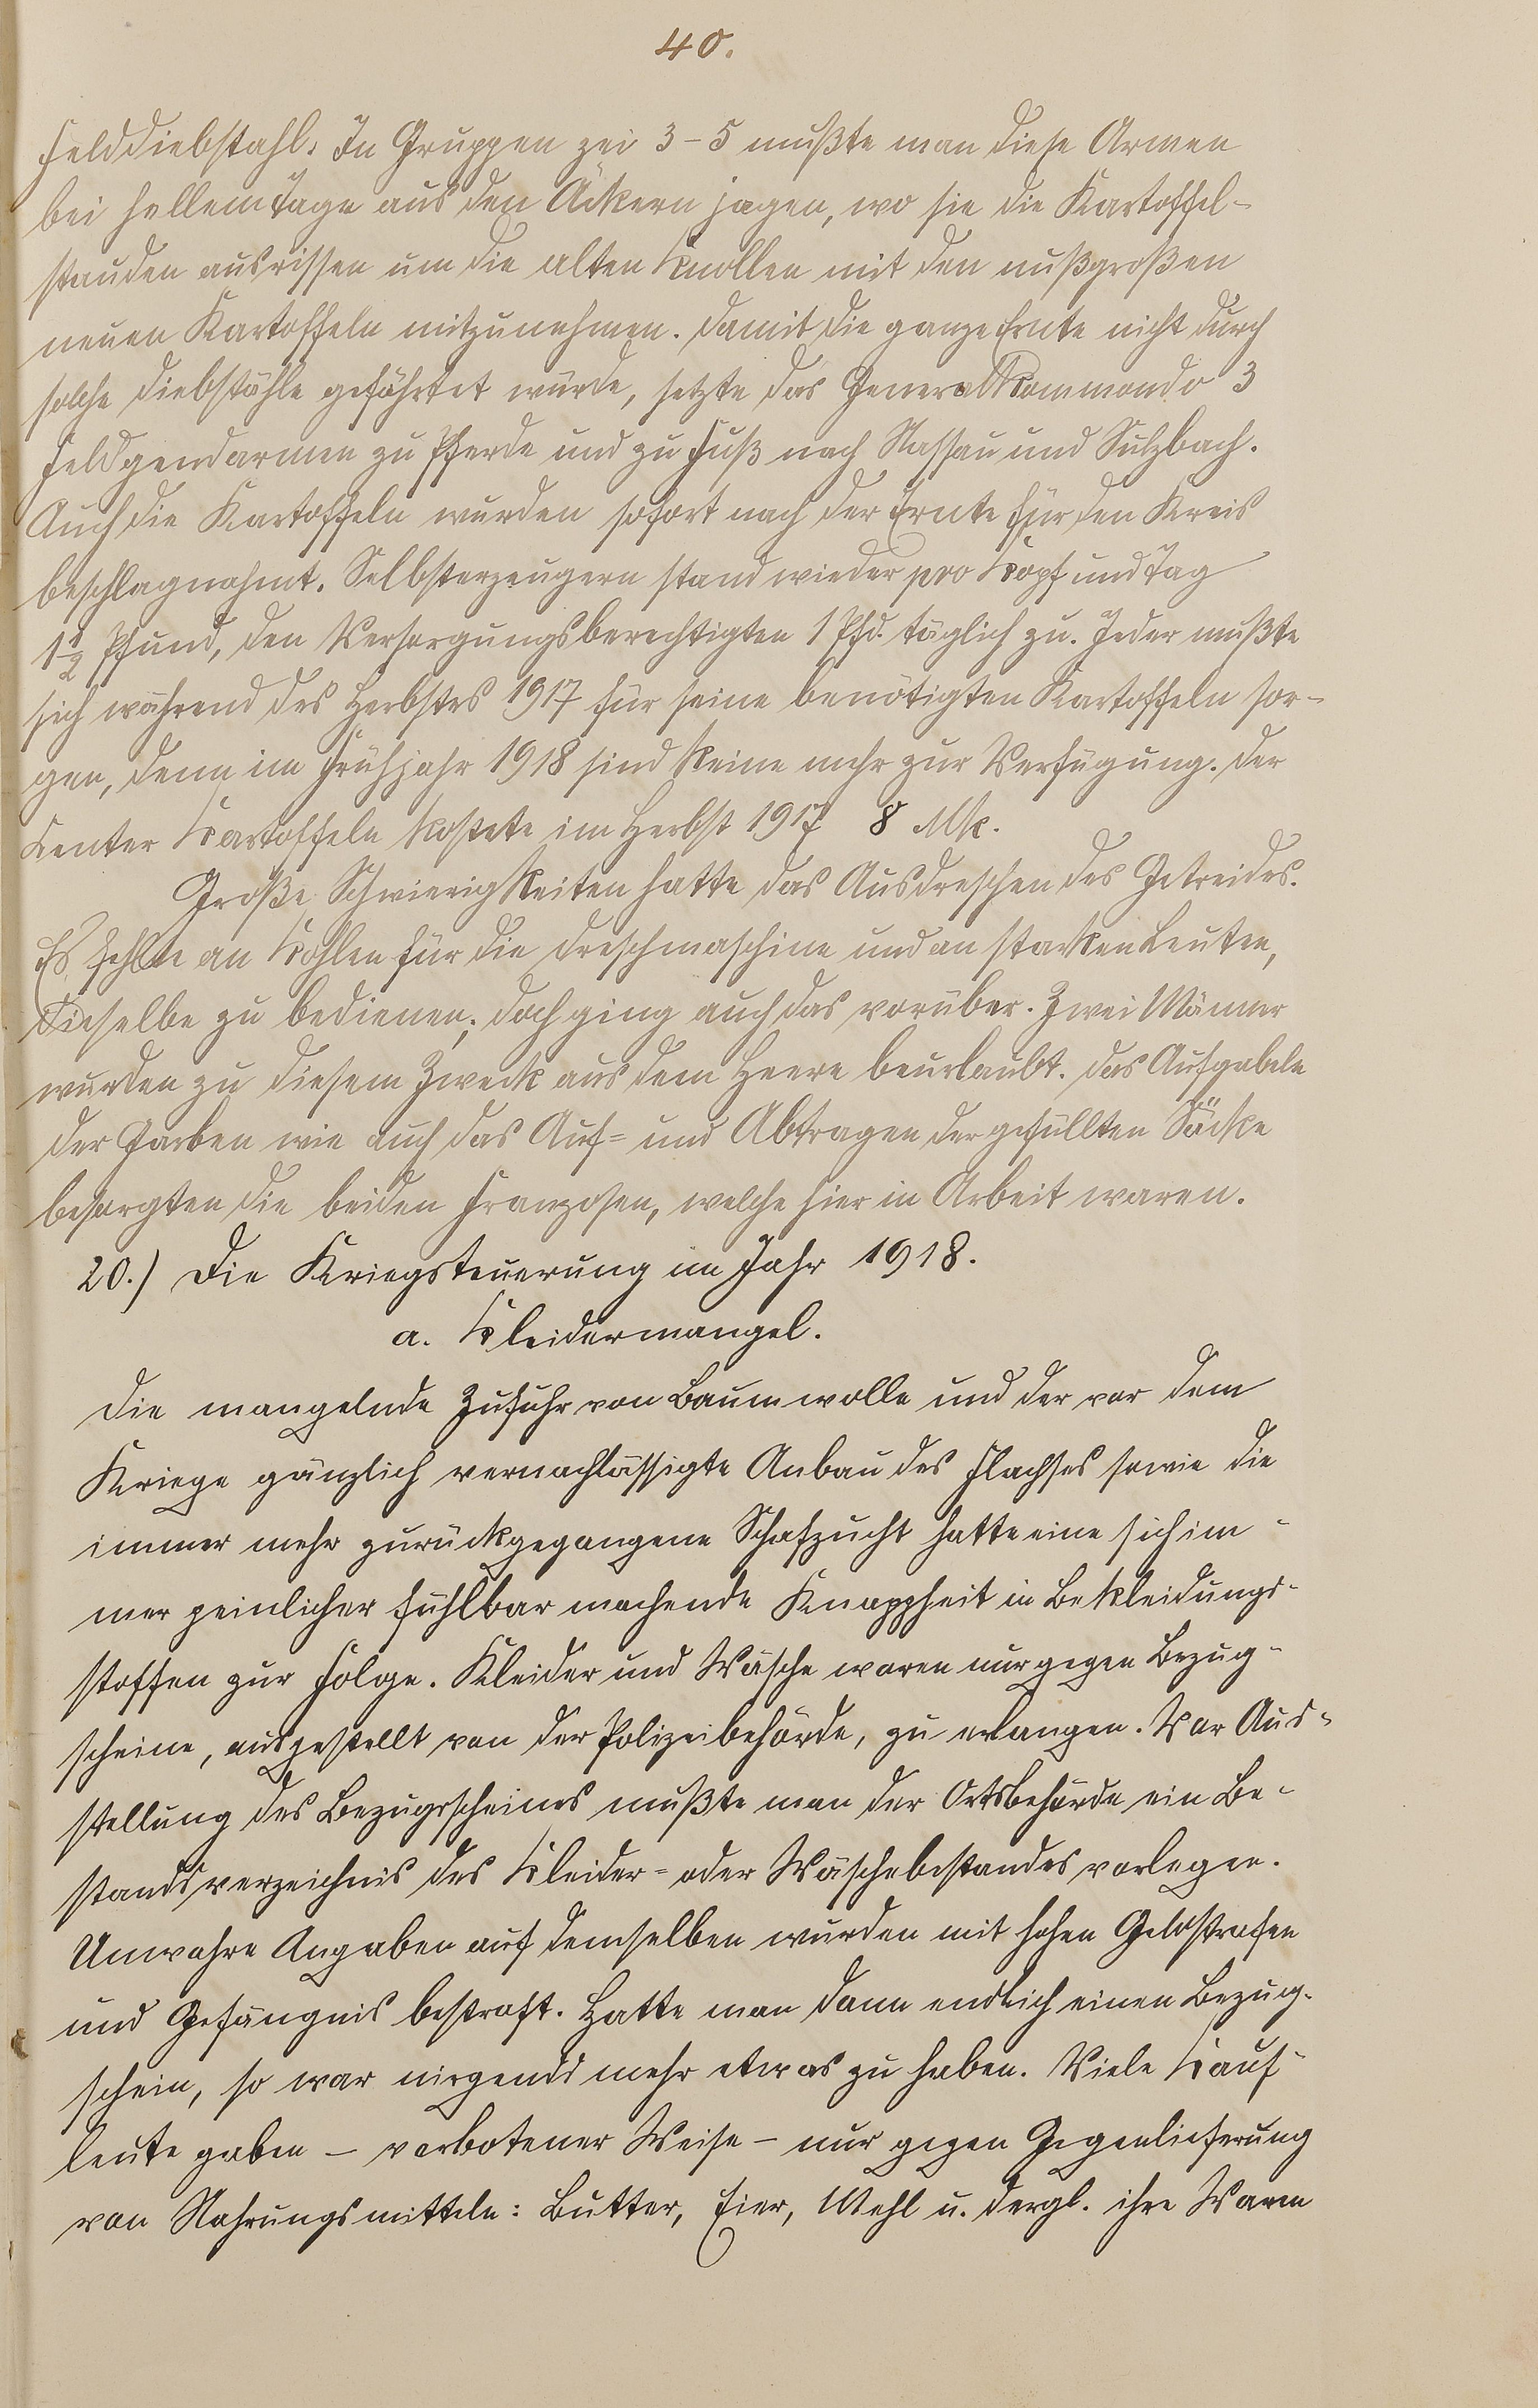 40.
Felddiebstahl. In Gruppen zei 3-5 mußte man diese Armen
bei hellem Tage aus den Äckern jagen, wo sie die Kartoffel-
stauden ausrissen um die alten Knollen mit den nußgroßen
neuen Kartoffeln mitzunehmen. Damit die ganze Ernte nicht durch
solche Diebstähle gefährtet würde, setzte das Generalkommando 3
Feldgendarmen zu Pferde und zu Fuß nach Nassau und Sulzbach.
Auch die Kartoffeln wurden sofort nach der Ernte für den Kreis
beschlagnahmt. Selbsterzeugern stand wieder pro Kopf und Tag
1 1/2 Pfund, den Versorgungsberechtigten 1 Pfd. täglich zu. Jeder mußte
sich während des Herbstes 1917 für seine benötigten Kartoffeln sor-
gen, denn im Frühjahr 1918 sind keine mehr zur Verfügung. Der
Center Kartoffeln kostete im Herbst 1917 8 Mk.
Große Schwierigkeiten hatte das Ausdreschen des Getreides.
Es fehlte an Kohlen für die Dreschmaschine und an starken Leuten,
dieselbe zu bedienen; doch ging auch das vorüber. Zwei Männer
wurden zu diesem Zweck aus dem Heere beurlaubt. Das Aufgabeln
der Garben wie auch das Auf= und Abtragen der gefüllten Säcke
besorgten die beiden Franzosen, welche hier in Arbeit waren.
20.) Die Kriegsteuerung im Jahr 1918.
a. Kleidermangel.
Die mangelnde Zufuhr von Baumwolle und der vor dem
Kriege gänzlich vernachlässigte Anbau des Flachses sowie die
immer mehr zurückgegangene Schafzucht hatte eine sich im-
mer peinlicher fühlbar machende Knappheit in Bekleidungs-
stoffen zur Folge. Kleider und Wäsche waren nur gegen Bezug-
scheine, ausgestellt von der Polizeibehörde, zu erlangen. Vor Aus-
stellung des Bezugsscheines mußte man der Ortsbehörde ein Be-
standsverzeichnis des Kleider= oder Wäschebestandes vorlegen.
Unwahre Angaben auf demselben wurden mit hohen Geldstrafen
und Gefängnis bestraft. Hatte man dann endlich einen Bezug-
schein, so war nirgends mehr etwas zu haben. Viele Kauf-
leute gaben - verbotener Weise - nur gegen Gegenlieferung
von Nahrungsmitteln: Butter, Eier, Mehl u. dergl. ihre Waren